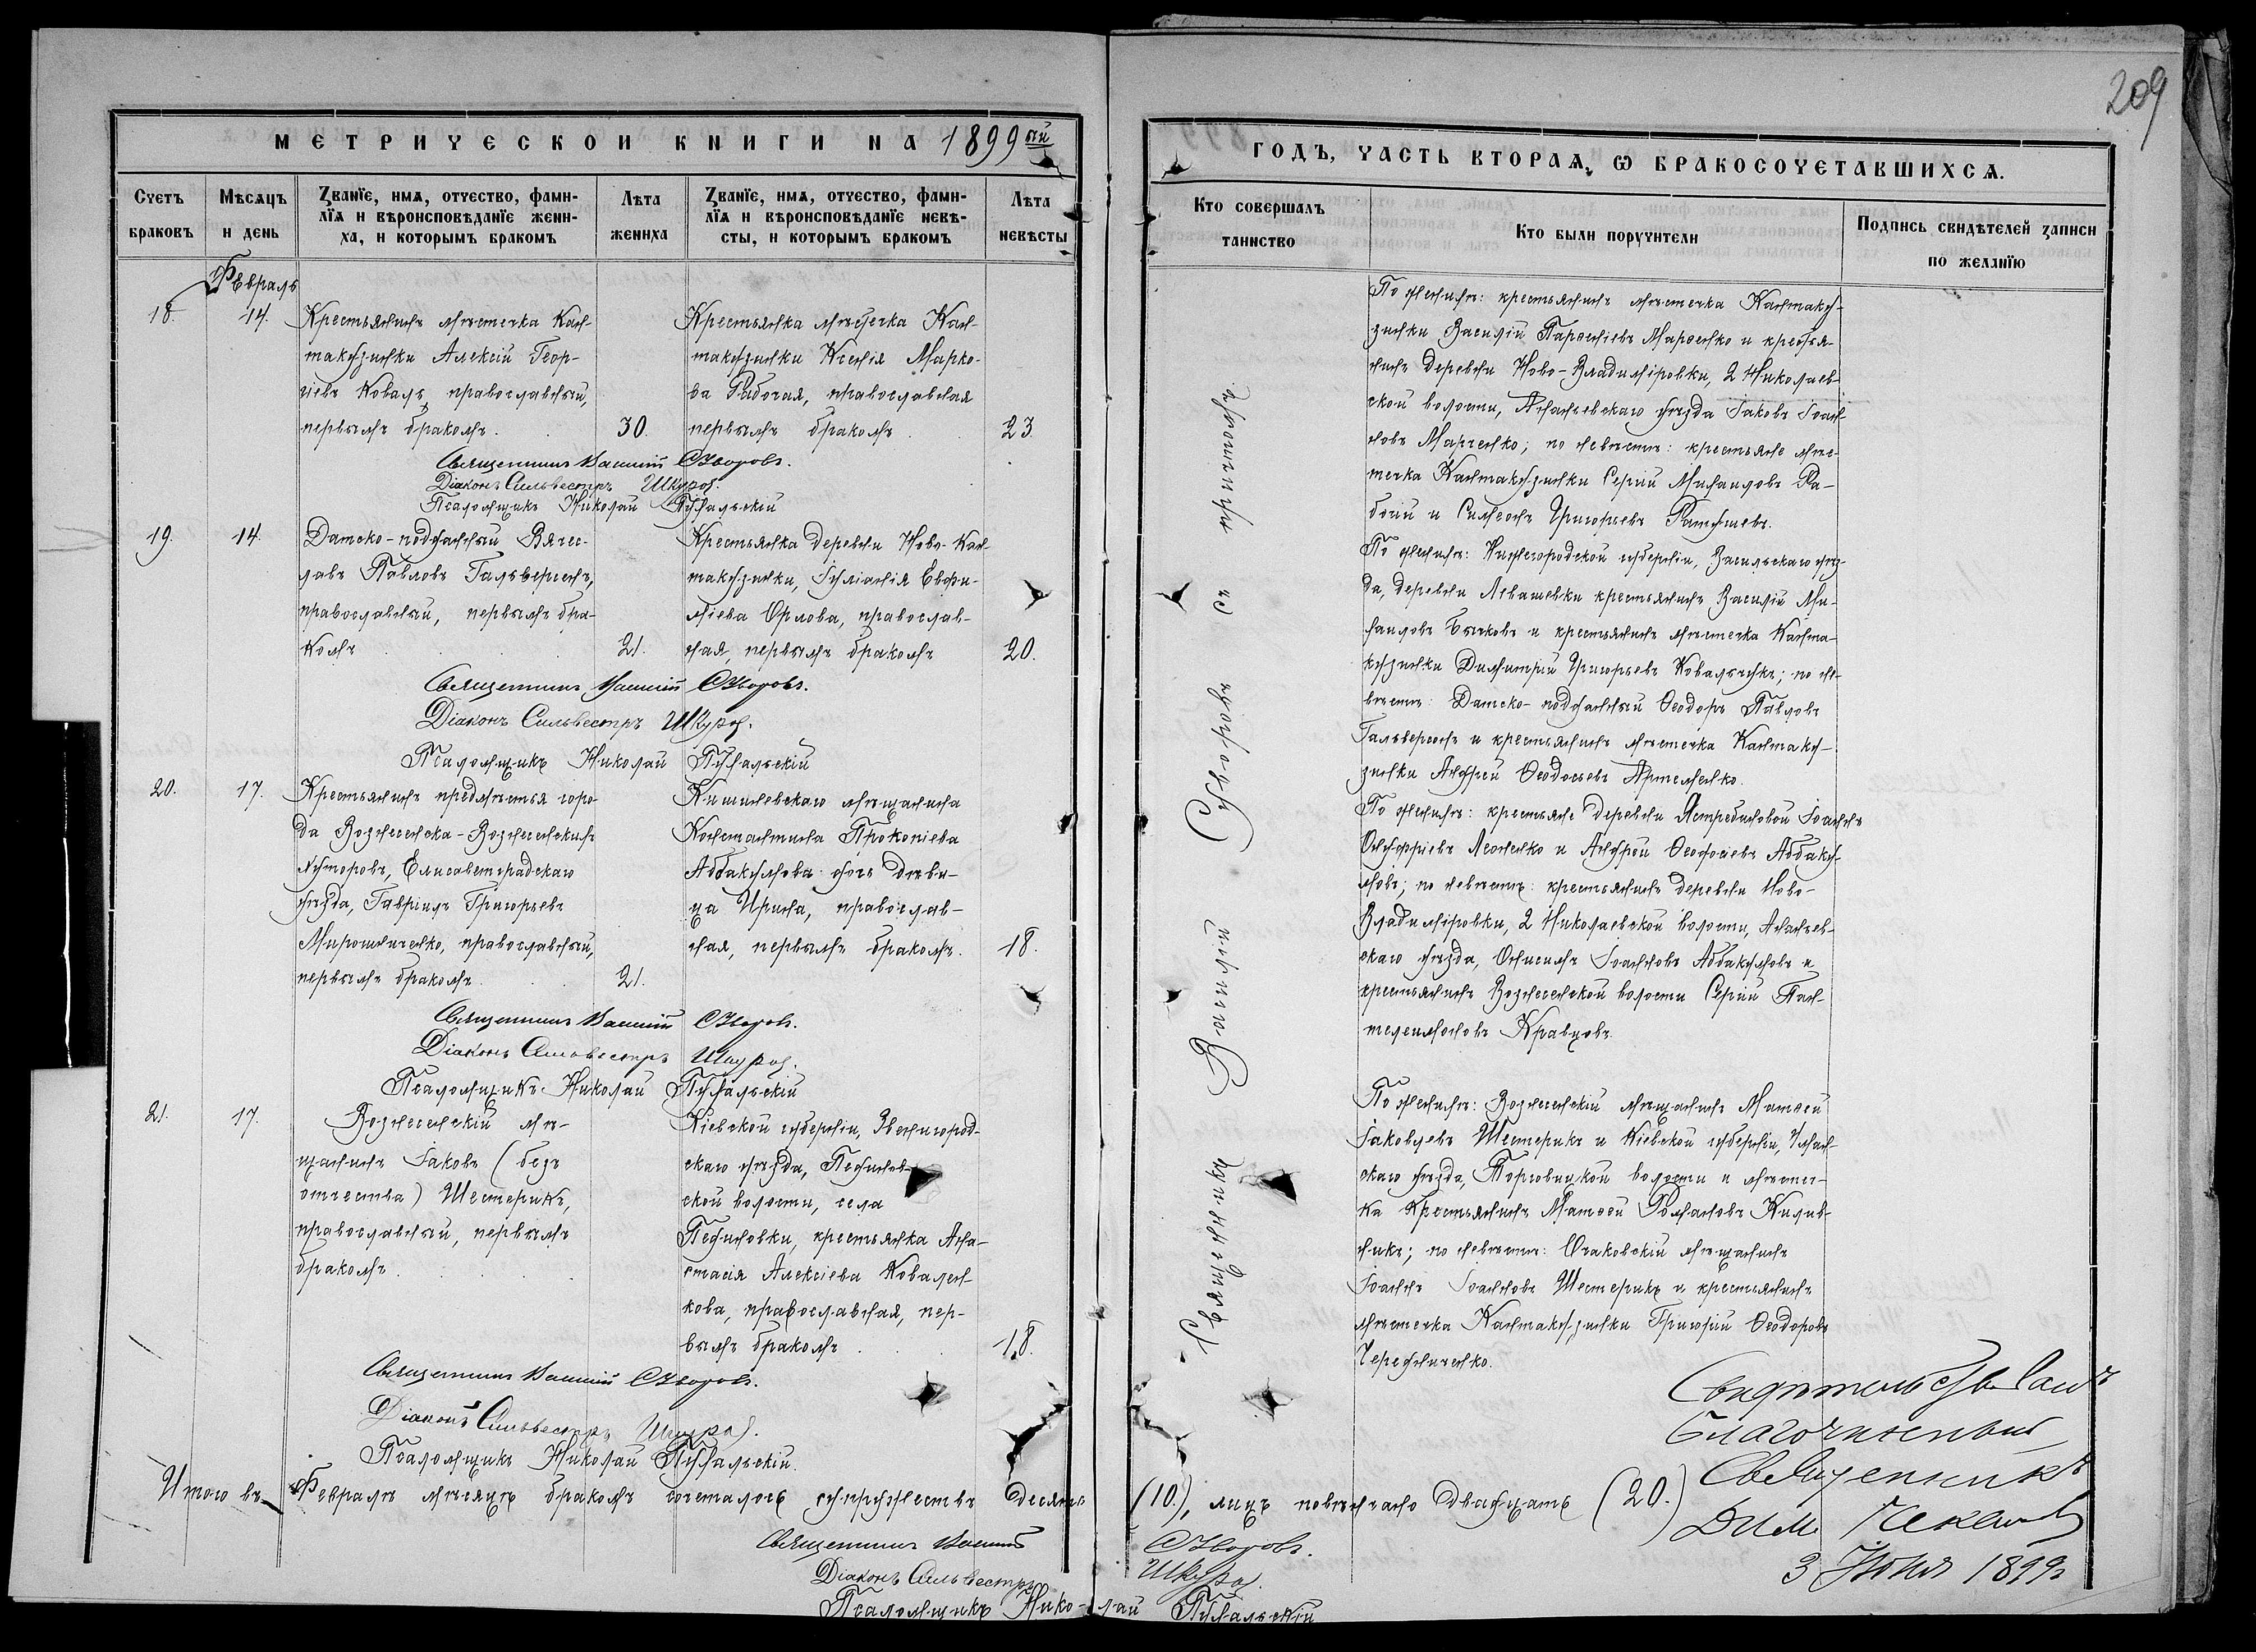 209
МЕТРИЧЕСКОЙ КНИГИ НА 1899ый
ГОДЪ, ЧАСТЬ ВТОРАѦ, Ѡ БРАКОСОЧЕТАВШИХСѦ.
Счетъ браковъ
Мѣсѧцъ и день
Званїе, имѧ, отчество, фами-
лїѧ и вѣроисповѣданїе жени-
ха, и которымъ бракомъ
Лѣта жениха
Званїе, имѧ, отчество, фами-
лїѧ и вѣроисповѣданїе невѣ-
сты, и которымъ бракомъ
Лѣта невѣсты
Кто совершалъ таинство
Кто были поручители
Подпись свидѣтелей записи по желанїю
Февраль
18
14.
Крестьянинъ мѣстечка Кан-
такузинки Алексій Геор-
гіевъ Коваль, православный,
первымъ бракомъ.
30.
Крестьянка мѣстечка Кан-
такузинки Ксенія Марко-
ва Рабочая, православная
первымъ бракомъ
23
По женихѣ: крестьянинъ мѣстечка Кантаку-
зинки Василій Парѳеніевъ Марченко и крестья-
нинъ деревни Ново-Владиміровки, 2 Николаев-
ской волости, Ананьевскаго уѣзда Іаковъ Іоан-
новъ Марченко; по невѣстѣ: крестьяне мѣс-
течка Кантакузинки Сергій Михаиловъ Ра-
бочій и Симеонъ Григорьевъ Ратушевъ.
Священникъ Василій Суворовъ.
Діаконъ Сильвестръ Шкура.
Псаломщикъ Николай
19.
14.
Датско-подданный Вячес-
лавъ Павловъ Гальверсенъ,
православный, первымъ бра-
комъ
21.
Крестьянка деревни Ново-Кан-
такузинки, Іуліанія Евфи-
міева Орлова, православ-
ная, первымъ бракомъ
20.
По женихѣ: Нижегородской губерніи, Васильскаго уѣз-
да, деревни Левашевки крестьянинъ Василій Ми-
хаиловъ Бычковъ и крестьянинъ мѣстечка Канта-
кузинки Димитрій Григорьевъ Ковальчукъ; по не-
вѣстѣ: Датско-подданный Ѳеодоръ Павловъ
Гальверсенъ и крестьянинъ мѣстечка Кантаку-
зинки Андрей Ѳеодосьевъ Артеменко.
Священникъ Василій Суворовъ.
Діаконъ Сильвестръ Шкура.
Псаломщикъ Николай
20.
17.
Крестьянинъ предмѣстья горо-
да Вознесенска-Вознесенскихъ
хуторовъ, Елисаветградскаго
уѣзда, Гавріилъ Григорьевъ
Мирошниченко, православный,
первымъ бракомъ
21.
Кишиневскаго мѣщанина
Константина Прокопіева
Аббакумова дочь дѣви-
ца Ирина, православ-
ная, первымъ бракомъ.
18.
По женихѣ: крестьяне деревни Ястребиновой Іоаннъ
Онуфріевъ Леоненко и Андрей Аббаку-
мовъ; по невѣстѣ: крестьянинъ деревни Ново-
Владиміровки, 2 Николаевской волости, Ананьев-
скаго уѣзда, Онисимъ Іоанновъ Аббакумовъ и
крестьянинъ Вознесенской волости Сергій Пан-
телеимоновъ Кравцовъ.
Священникъ Василій Суворовъ.
Діаконъ Сильвестръ Шкура.
Псаломщикъ Николай
21.
17.
Вознесенскій мѣ-
щанинъ Іаковъ (безъ
отчества) Шестерикъ,
православный, первымъ
бракомъ
Кіевской губерніи, Звенигород-
скаго уѣзда,
ской волости, села
крестьянка Ана-
стасія Алексіева Ковален-
кова, православная, пер-
вымъ бракомъ
18.
По женихѣ: Вознесенскій мѣщанинъ Матѳей
Іаковлевъ Шестерикъ и Кіевской губерніи, Уман-
скаго уѣзда, Торговицкой волости и мѣстеч-
ка крестьянинъ Матѳей Романовъ
по невѣстѣ: Очаковскій мѣщанинъ
Іоаннъ Іоанновъ Шестерикъ и крестьянинъ
мѣстечка Кантакузинки Григорій Ѳеодоровъ
Чередниченко.
Священникъ Василій Суворовъ.
Діаконъ Сильвестръ Шкура.
Псаломщикъ Николай
Священникъ Василій Суворовъ съ причтомъ
Итого въ Февралѣ мѣсяцѣ бракомъ сочеталось супружествъ десять (10.), лицъ повѣнчано двадцать (20.)
Священникъ Василій Суворовъ.
Діаконъ Сильвестръ Шкура.
Псаломщикъ Николай
Свидѣтельствовалъ
Благочинный
Священникъ
Дим.
3 Іюня 1899